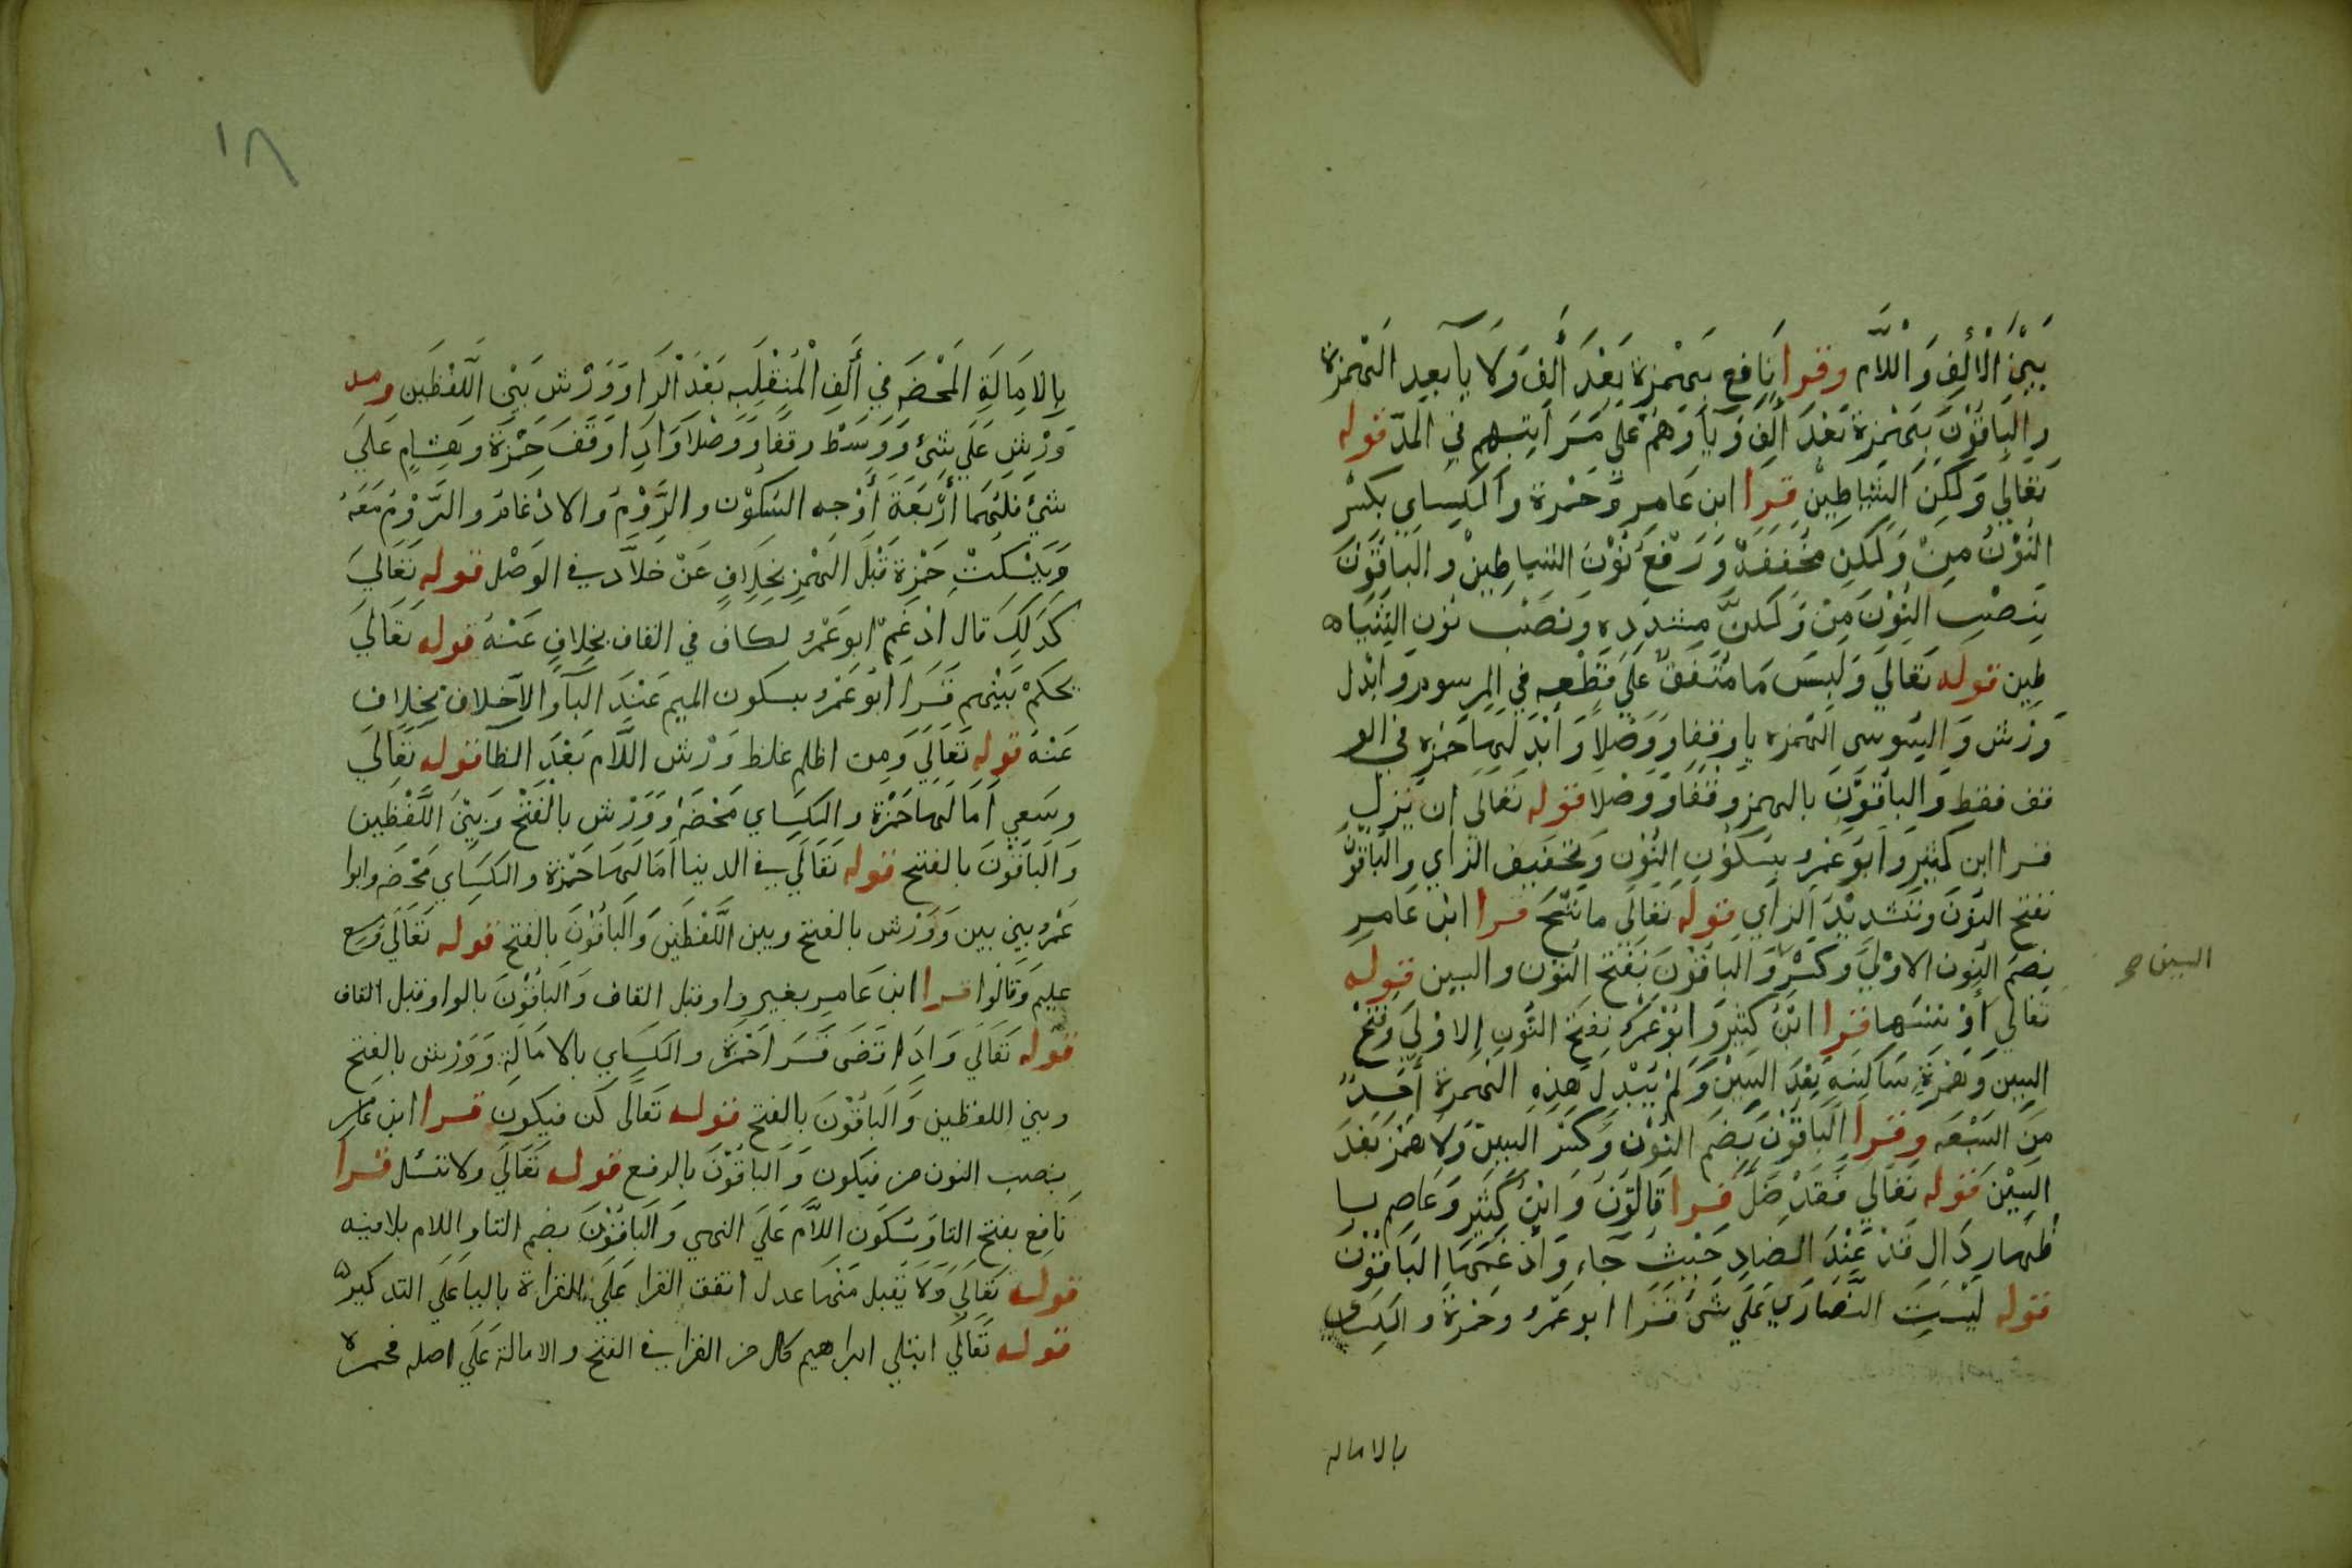 بَيْنَ الْأَلِفِ وَاللَّام وقرا نَافِع بهَمْزة بَعْدَ أَلِف وَلَا يآ بعد الهَمْزة
وَالبَاقُوْنَ بِهَمْزَة بَعْدَ أَلِف وَيَآ وَهُمْ عَلي مَرَاتِبهم في المدّ قوله
تَعَالي وَلَكِن الشياطِيْن قرا ابن عَامِر وَّحَمْزة وَالكِسَاي بكسْر
النُوْنُ مِنْ وَلَكِن مخُفَفَة وَرَفْع نُوْنَ الشياطِيْن وَالبَاقُوْنَ
بِنَصْبِ النُوْنَ مِنْ وَلَكنَّ مشدده وَنصَبْ نُوْن الشيَا
طِين قوله تَعَالَي وَلَبِيسَ مَا مُتَفَقٌ عَلَي قَطْعِهِ في المرسوم وَابْدل
وَرْش وَالسُوسِي الهَمزه يا وَقفا وَوَصْلا وَابْدَلَهَا حَمْزة في الو
قف فقط وَالبَاقُوْنَ بالهمز وقفَا وَوَصْلا قوله تَعَالَى ان يُنزل
قرا ابن كَثِير وَابُوعَمْرو بسُكوُن النُوْن وَتخفيف الزاي والبَاقُوْنُ
بفتح النوْنَ وتَشديْدَ الزَاي قوله تَعَالَى ما ننْسَخَ قرا ابْن عَامِر
بضم النُون الاوْلَيَ وكسْرِ وَالبَاقُوْنَ بفَتْح النُوْن والسين قوله
تَعَالي أوْ ننسهَا قرا ابْنُ كَثِير وَابُوْعَمْرُو بفتحَ النُوْنِ الاوْلَيَ وَفَتْح
السِينَ وَهَمْزَة سَاكِنَه بَعْدَ السِيْنَ وَلَمْ يُبْدل هَذِهِ الهَمزة أحَدٌ
مِنَ السَبْعَه وقرا البَاقُوْنَ بضَم النُوْن وَكَسْر السِينْ وَلَا هَمْز بَعْدَ
السِيْنَ قوله تَعَالَي فَقَدْ ضَلَّ قرا قَالوُنَ وَابْنُ كَثِير وَعَاصِم با
ظهار دَال قَدْ عِنْدَ الضَادِ حَيْثُ جَآء وَادْغَمَهَا البَاقوُنَ
قوله لَيْسَتِ النَّصَارَيَ عَلَي شَيْ قَرَا ابُوعَمْرو وحَمْزة وَالكِسَاي
السين صح
بالاماله
١٨
بِالامَالَةِ المَحْضَه في أَلَفِ الْمُنقَلِبَه بَعْدَ الْرَا وَوَرْش بَيْن اللَّفْظَين ومد
وَرْش عَلَي شَيْ وَوَسَط وقفا وَوَصْلا وَاذِا وقَفَ حَمْزة وهِشَام عَلَيَ
شيْ فلَهُمَا أَرْبَعَة أَوْجه السكُوْن والرَّوْم وَالادْغَام والرَّوْمَ مَعَهُ
وَيَسْكتْ حَمْزة قَبْلَ الهَمْز بخِلاف عَنْ خلاَّد في الوَصْل قوله تَعَاليَ
كذلِك قال ادْغَمَ ابُوعَمْرُو لكاف في القاف بخِلاف عَنْهُ قوله تعَالَيَ
يحكمْ بَيْنهم قَرَا ابُوعَمْرُو بسكون الميم عِنْدَ البآ والاخلاف بخِلاف
عَنْهُ قوله تَعَالَيَ وَمِن اظلم غلظ وَرْش اللَّام بَعْدَ الظَا قوله تَعَاليَ
وسَعي أَمَالَهَا حَمْزة والكِسَاي مَحْضَهُ وَوَرْش بالْفَتْح وَبَيْنَ اللَّفْظَيْن
وَالبَاقُوْنَ بالفتح قوله تَعَالَي في الدينا امَالَهَا حَمْزة والكِسَاي مَحْضَه وابوا
عَمْرو بين بين وَوَرْش بالفتح وبين اللَّفْظَيْن وَالبَاقُوْنَ بالفتح قوله تَعَالَي وَسِع
عليم وَقالوُا قرا ابن عَامِر بغير واو قبل القاف وَالبَاقُوْنَ بالواو قبل القاف
قوله تَعَالَي وَاذَا قضَى قَرَا حَمْزَة والكِسَاي بالامَالَة وَوَرْش بالفتح
وبين اللفظين وَالبَاقُوْنَ بالفتح قوله تَعَالَى كن فيكون قرا ابن عَامِر
بنصب النون من فيكون وَالبَاقُوْنَ بالرفع قوله تَعَالَي ولا تسئل قرا
نَافِع بفتح التا وَسُكُون اللاَّم عَلَيَ النهي وَالبَاقُوْنَ بضم التا واللام بلا فيه
قوله تَعَالَي وَلَا يَقبل مِنْهَا عدل اتفق القرا عَلَيَ القراة باليا عَلَي التدكير
قوله تَعَالَي ابتلي ابراهيم كل من القرا في الفتح والامالة عَلَي اصله فحمزه